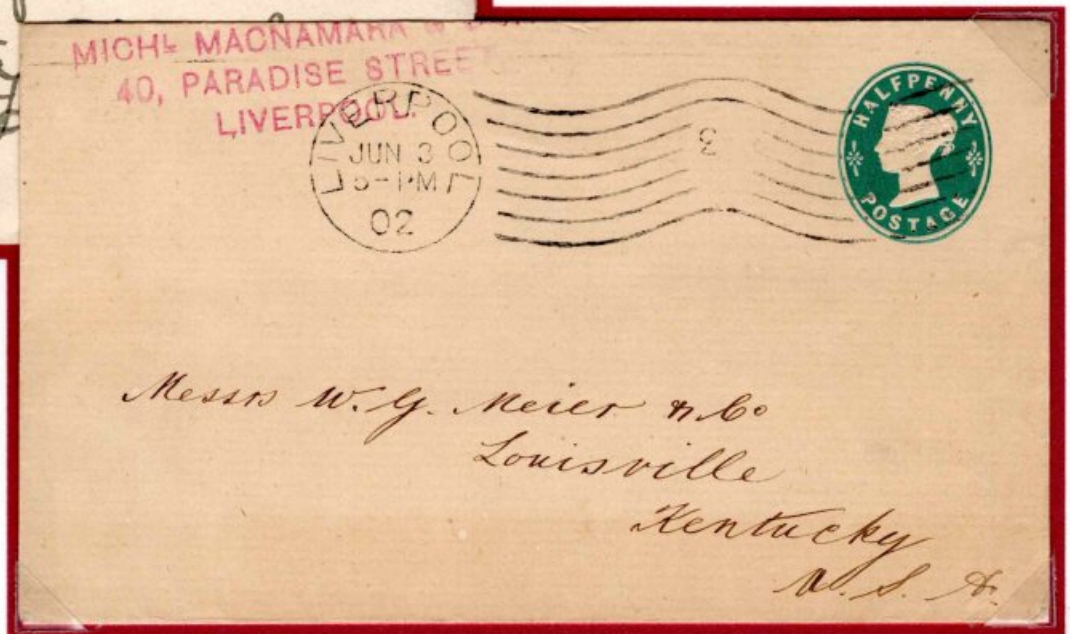 MICHL MACNAMARA
40, PARADISE STREET
LIVERPOOL.
LIVERPOOL
JUN 3
5-PM
02
3
HALFPENNY
POSTAGE
Messrs W. G. Meier & Co
Louisville
Kentucky
U. S. A.